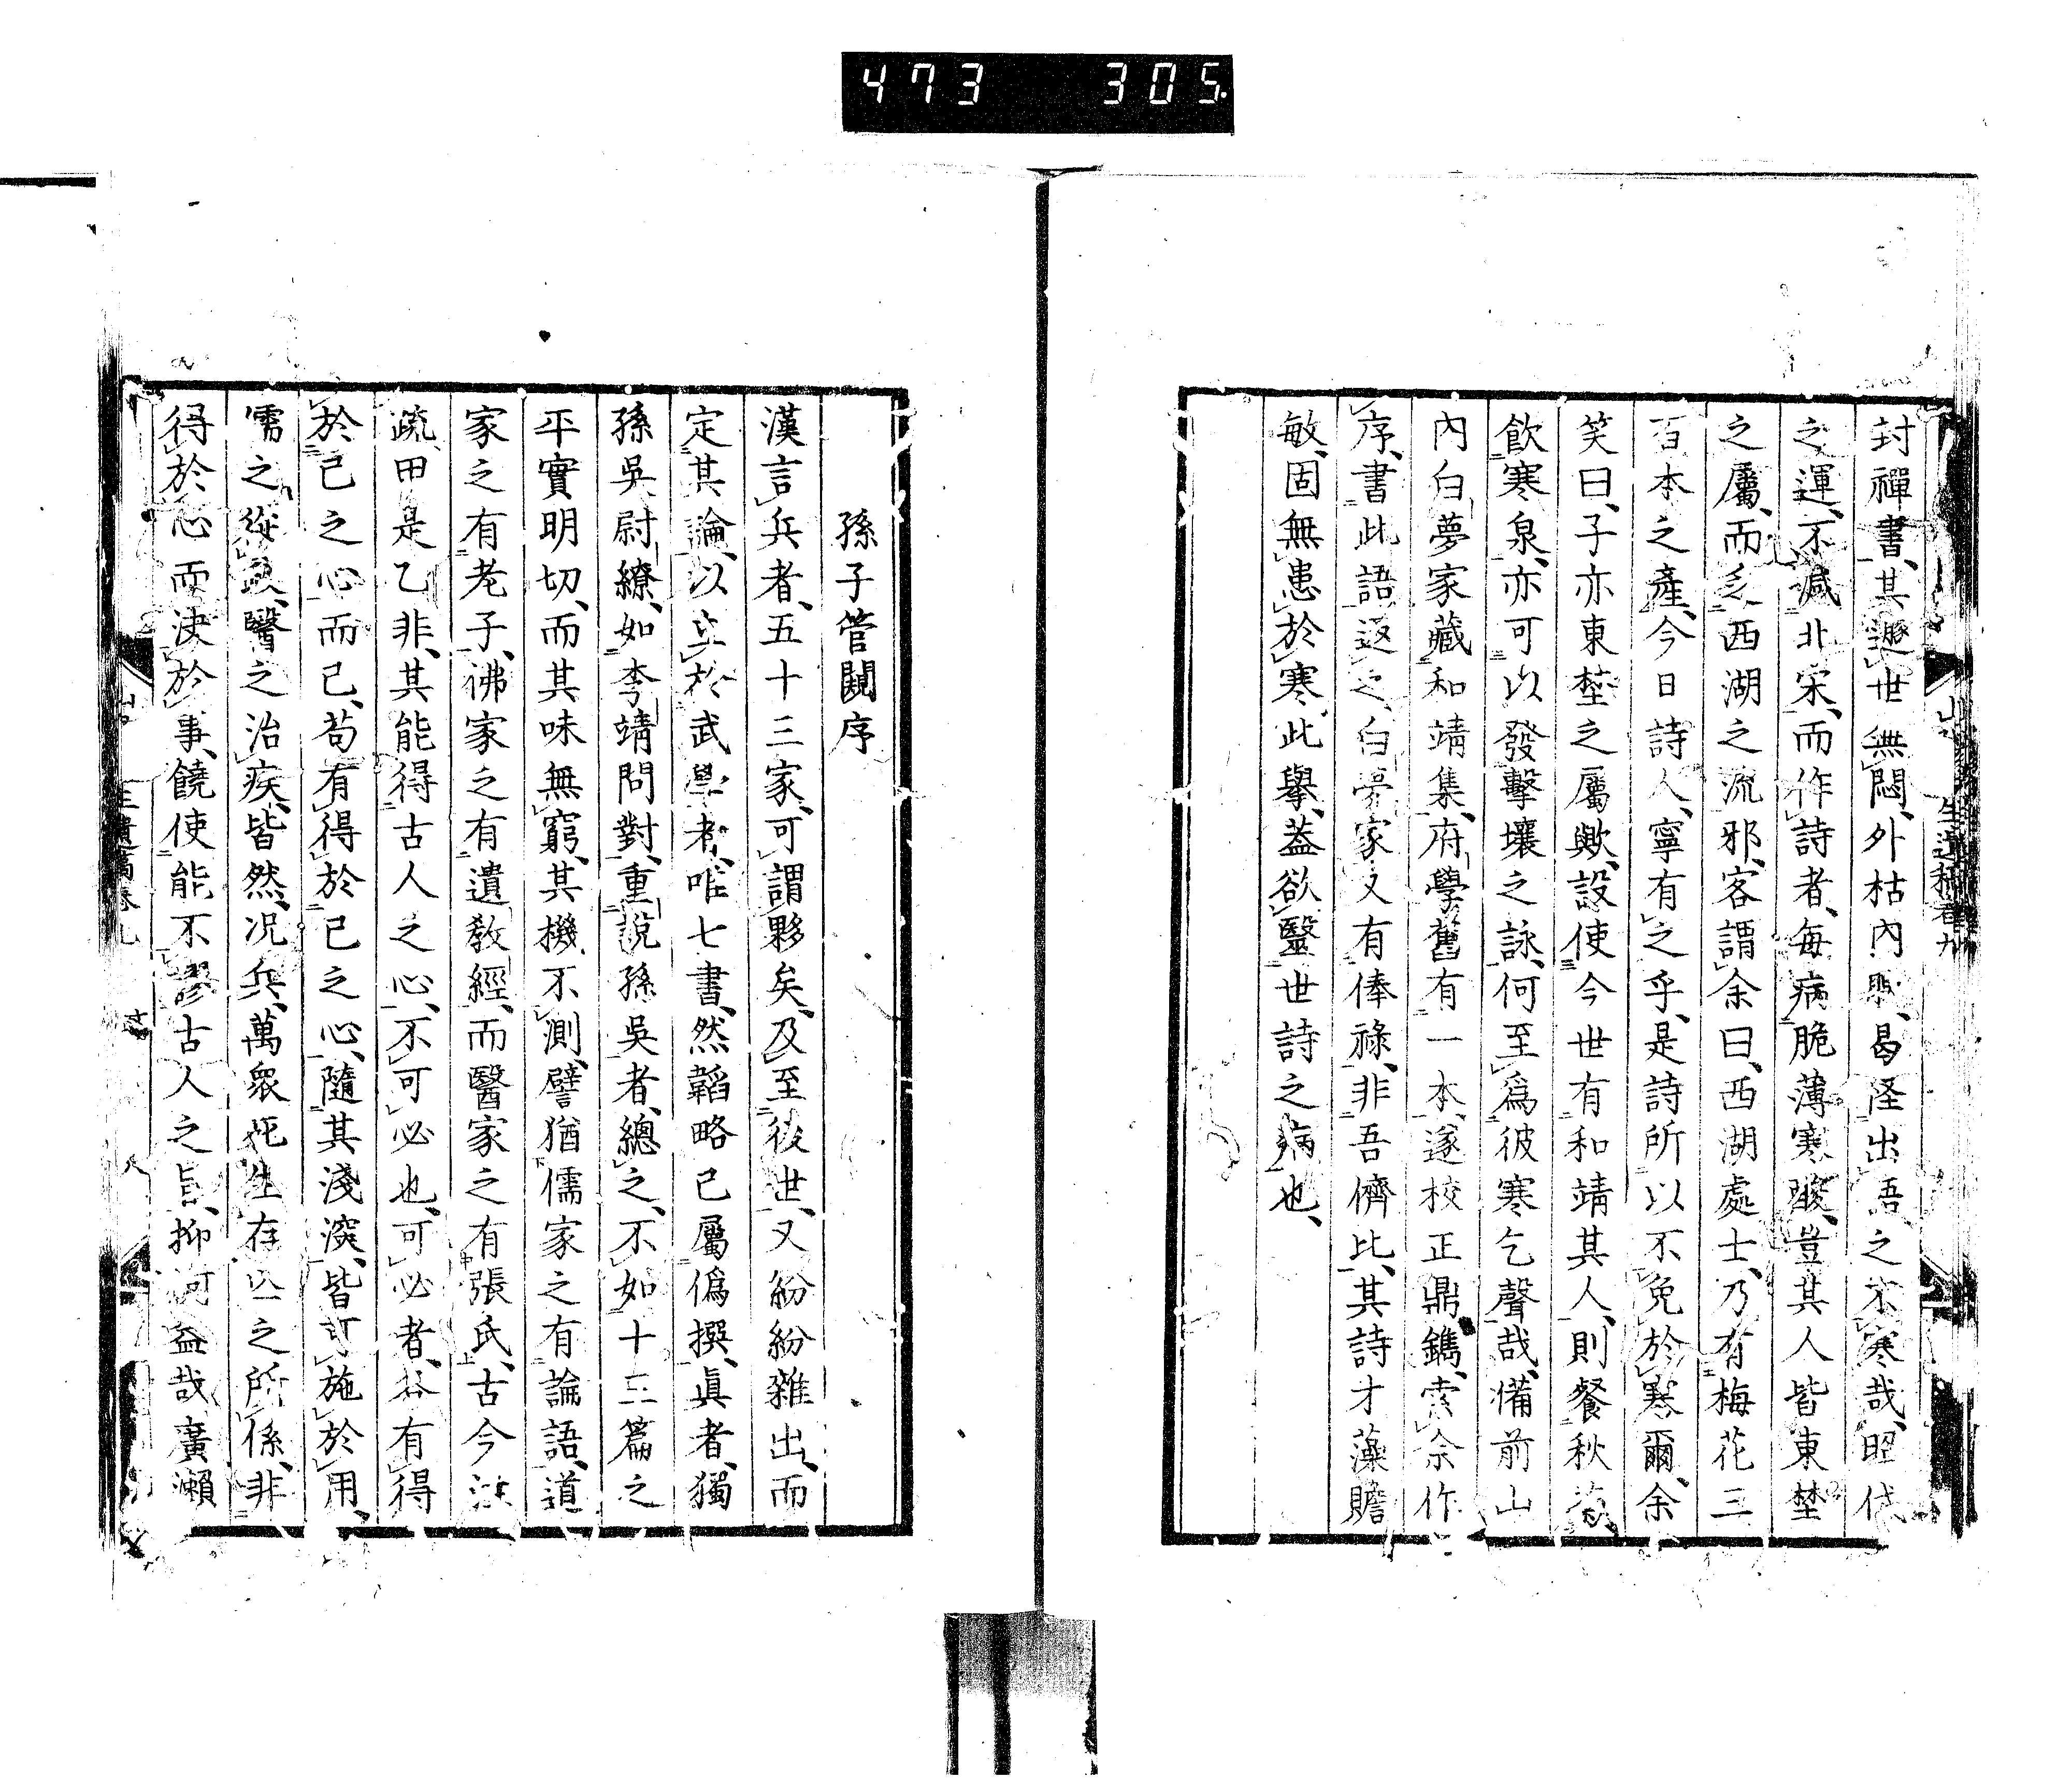 473 305
封禪書、其遯世無悶、外枯內腴、曷怪出語之不寒哉、昭代
之運、不減北宋、而作詩者、每病脆薄寒酸、豈其人皆東埜
之屬、而乏西湖之流邪、客謂余曰、西湖處士、乃有梅花三
百本之產、今日詩人、寧有之乎、是詩所以不免於寒爾、余
笑曰、子亦東埜之屬歟、設使今世有和靖其人、則餐秋菊
飲寒泉、亦可以發擊壤之詠、何至爲彼寒乞聲哉、備前山
內白夢家藏和靖集、府學舊有一本、遂校正鼎鐫、索余作
序、書此語返之、白夢家又有俸祿、非吾儕比、其詩才藻贍
敏、固無患於寒、此擧、蓋欲毉世詩之病也、
孫子管闚序
漢言兵者、五十三家、可謂夥矣、及至後世、又紛紛雜出、而
定其論、以立於武學者、唯七書、然韜略已屬僞撰、眞者、獨
孫吳尉繚、如李靖問對、重說孫吳者、總之、不如十三篇之
平實明切、而其味無窮、其機不測、譬猶儒家之有論語、道
家之有老子、佛家之有遺敎經、而醫家之有張氏、古今注
疏、甲是乙非、其能得古人之心、不可必也、可必者、各有得
於己之心而已、苟有得於己之心、隨其淺深、皆可施於用、
儒之從政、醫之治疾、皆然、況兵、萬衆死生存亡之所係、非
得於心而決於事、饒使能不謬古人之旨、抑何益哉、廣瀨